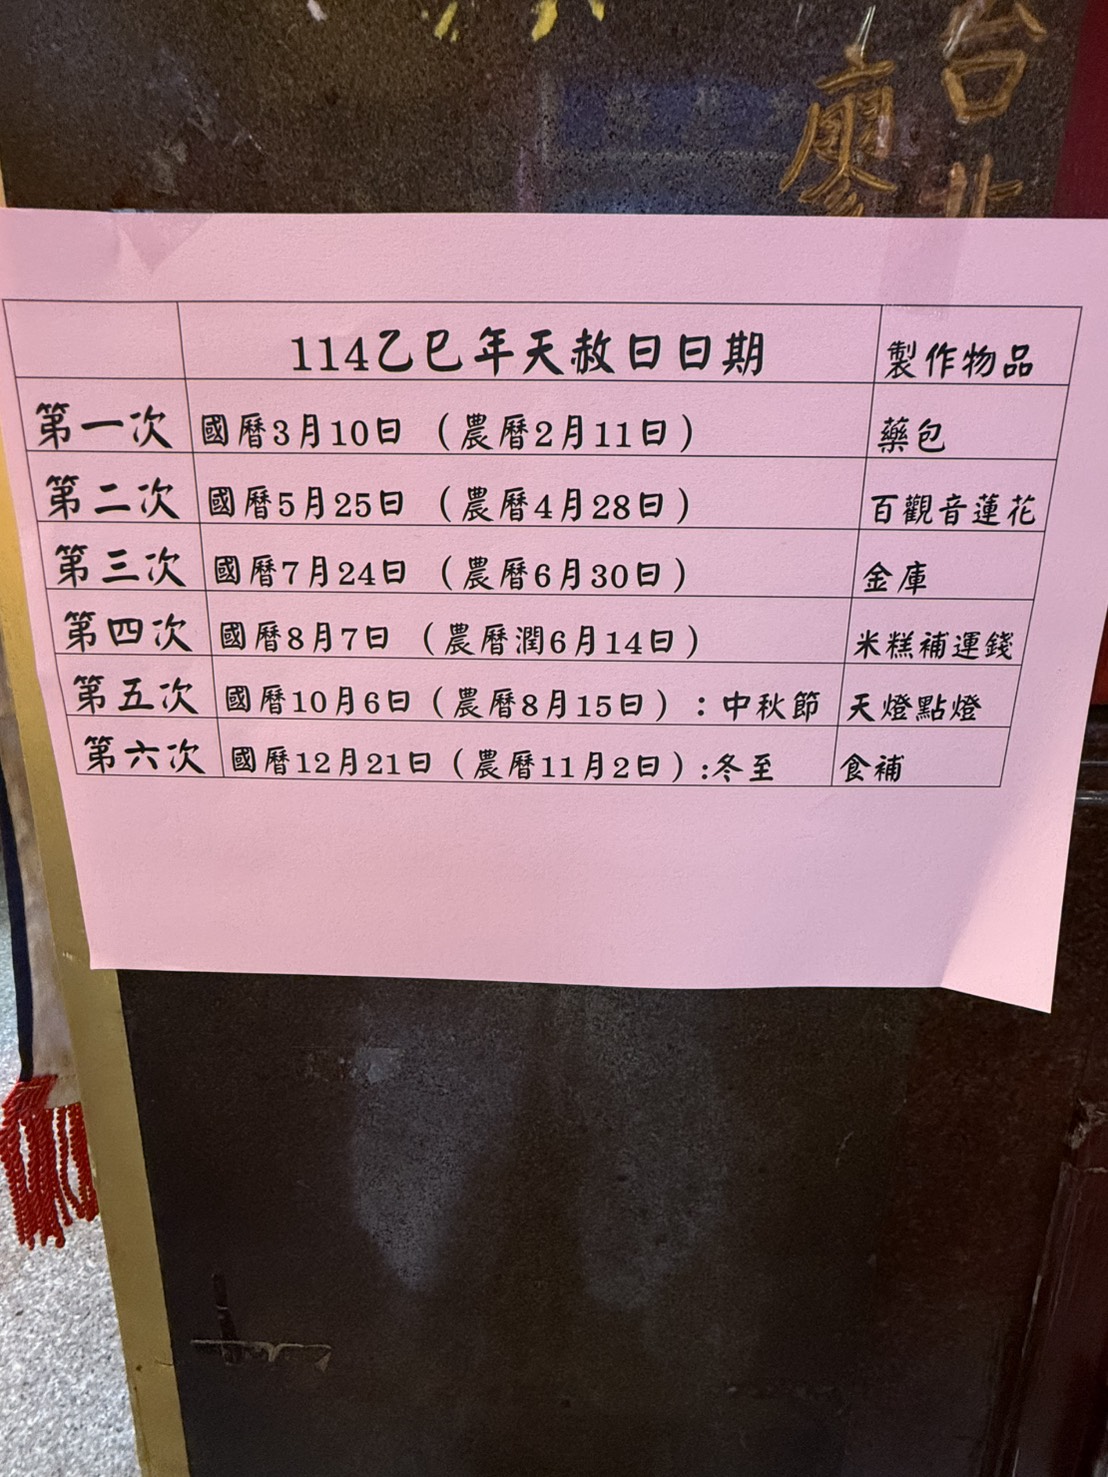 台北
廖
114乙巳年天赦日日期 製作物品
第一次 國曆3月10日 （農曆2月11日） 藥包
第二次 國曆5月25日 （農曆4月28日） 百觀音蓮花
第三次 國曆7月24日 （農曆6月30日） 金庫
第四次 國曆8月7日 （農曆潤6月14日） 米糕補運錢
第五次 國曆10月6日（農曆8月15日）：中秋節 天燈點燈
第六次 國曆12月21日（農曆11月2日）:冬至 食補